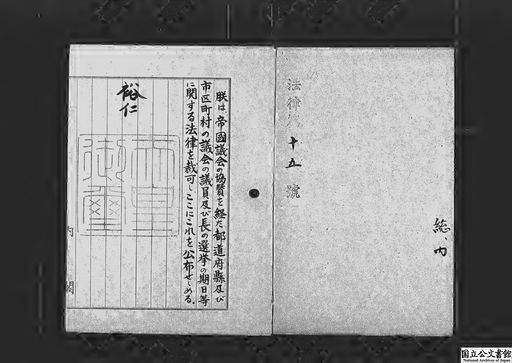 法律第十五號
総、内
朕は帝國議会の協賛を経た都道府縣及び
市区町村の議会の議員及び長の選挙の期日等
に関する法律を裁可し、ここにこれを公布せしめる。
裕仁
天皇御璽
内閣
国立公文書館
National Archives of Japan